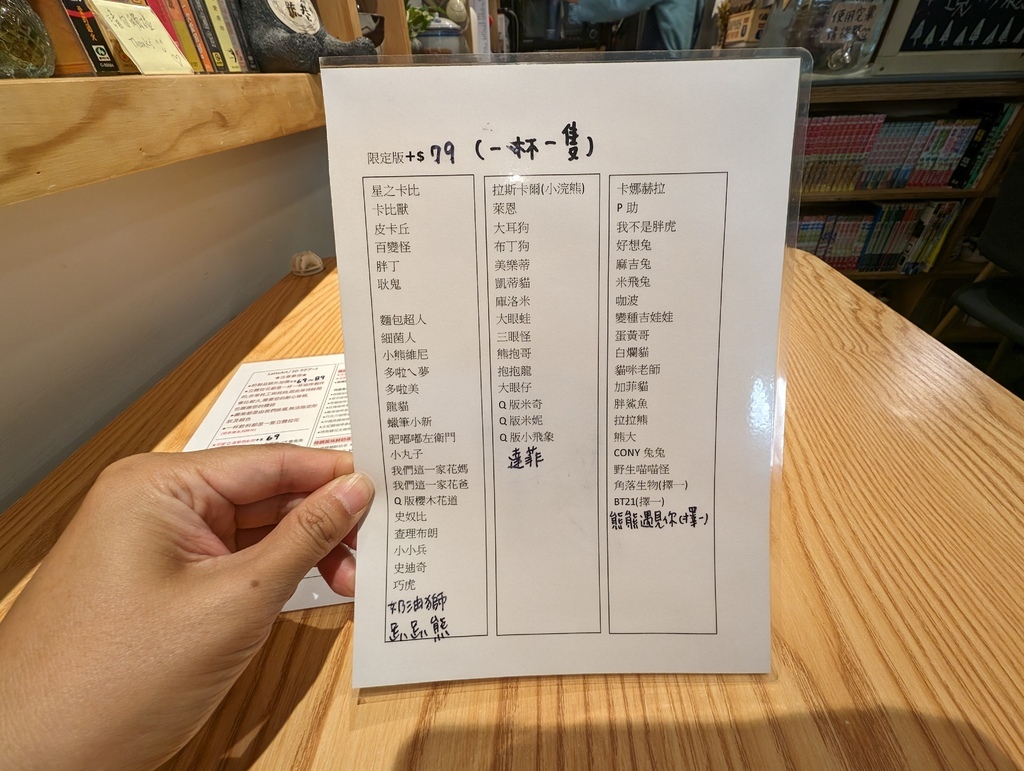 限定版+$ 79 (一杯一隻)
星之卡比
卡比獸
皮卡丘
百變怪
胖丁
耿鬼
麵包超人
細菌人
小熊維尼
多啦ㄟ夢
多啦美
龍貓
蠟筆小新
肥嘟嘟左衛門
小丸子
我們這一家花媽
我們這一家花爸
Q 版櫻木花道
史奴比
查理布朗
小小兵
史迪奇
巧虎
奶油獅
趴趴熊
拉斯卡爾(小浣熊)
萊恩
大耳狗
布丁狗
美樂蒂
凱蒂貓
庫洛米
大眼蛙
三眼怪
熊抱哥
抱抱龍
大眼仔
Q 版米奇
Q 版米妮
Q 版小飛象
達菲
卡娜赫拉
P 助
我不是胖虎
好想兔
麻吉兔
米飛兔
咖波
變種吉娃娃
蛋黃哥
白爛貓
貓咪老師
加菲貓
胖鯊魚
拉拉熊
熊大
CONY 兔兔
野生喵喵怪
角落生物(擇一)
BT21(擇一)
熊熊遇見你(擇一)